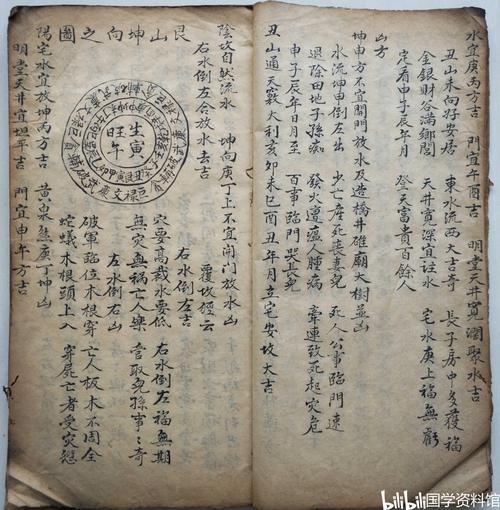 水宜庚丙方吉 門宜午酉吉 明堂天井寬濶聚水吉
丑山未向好安居 東水流西大吉奇 長子房中多發福
金銀財谷滿鄉閭 天井寬深宜注水 宅水庚上福無虧
定看申子辰年月 登天富貴百餘人
山方
坤申方不宜開門放水及造橋井碓廟大樹並凶
水流坤申倒左出 少亡產死喪妻兒 死人公事臨門速
退除田地子孫痴 發火遭瘟人腫病 牽連致死起災危
申子辰年日月至 百事臨門哭長兒
丑山通天竅大利亥卯未巳酉丑年月立宅安坟大吉
陰坟自然流水 坤向庚丁上不宜開門放水凶
右水倒左合放水去吉 覆坟經云
右水倒左吉
穴要高裁水要低 右水倒左福無期
無災無禍亡人樂 管取兒孫事〻奇
左水倒右凶
破軍臨位木根穿 亡人板木不周全
蛇蟻木根頭上入 穿屍亡者受災愆
艮山坤向之圖
生寅
旺午
陽宅水宜放坤丙方吉 黃泉煞庚丁坤凶
明堂天井宜坦平吉 門宜申午方吉
bilibili国学资料馆